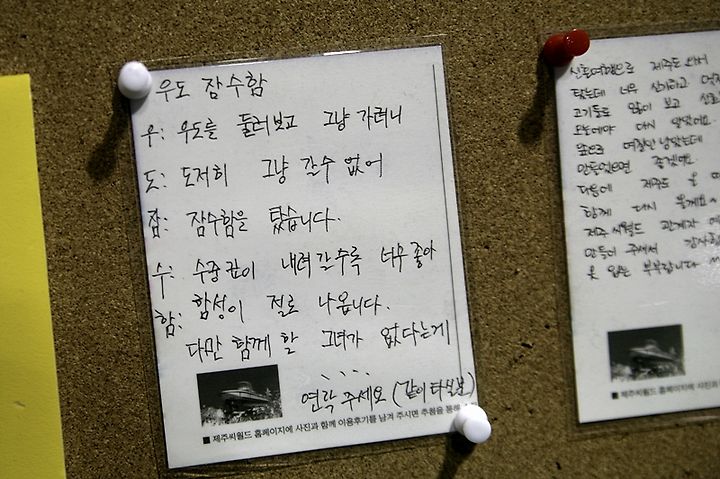 우도 잠수함
우: 우도를 둘러보고 그냥 가려니
도: 도저히 그냥 갈수 없어
잠: 잠수함을 탔습니다.
수: 수중 깊이 내려 갈수록 너무 좋아
함: 함성이 절로 나옵니다.
다만 함께 할 그녀가 없다는게
....
연락 주세요 (같이 타실분)
■ 제주씨월드 홈페이지에 사진과 함께 이용후기를 남겨 주시면 추첨을 통해
신혼여행으로 제주도 와서
탔는데 너무 신기하고
고기들도 많이 보고
다시
앞으로
만들었으면 좋겠네요.
다음에 제주도 올
함께 다시 올게요~
제주 씨월드 관계자
만들어 주셔서 감사
옷 입은 부부입니다
■ 제주씨월드 홈페이지에 사진과